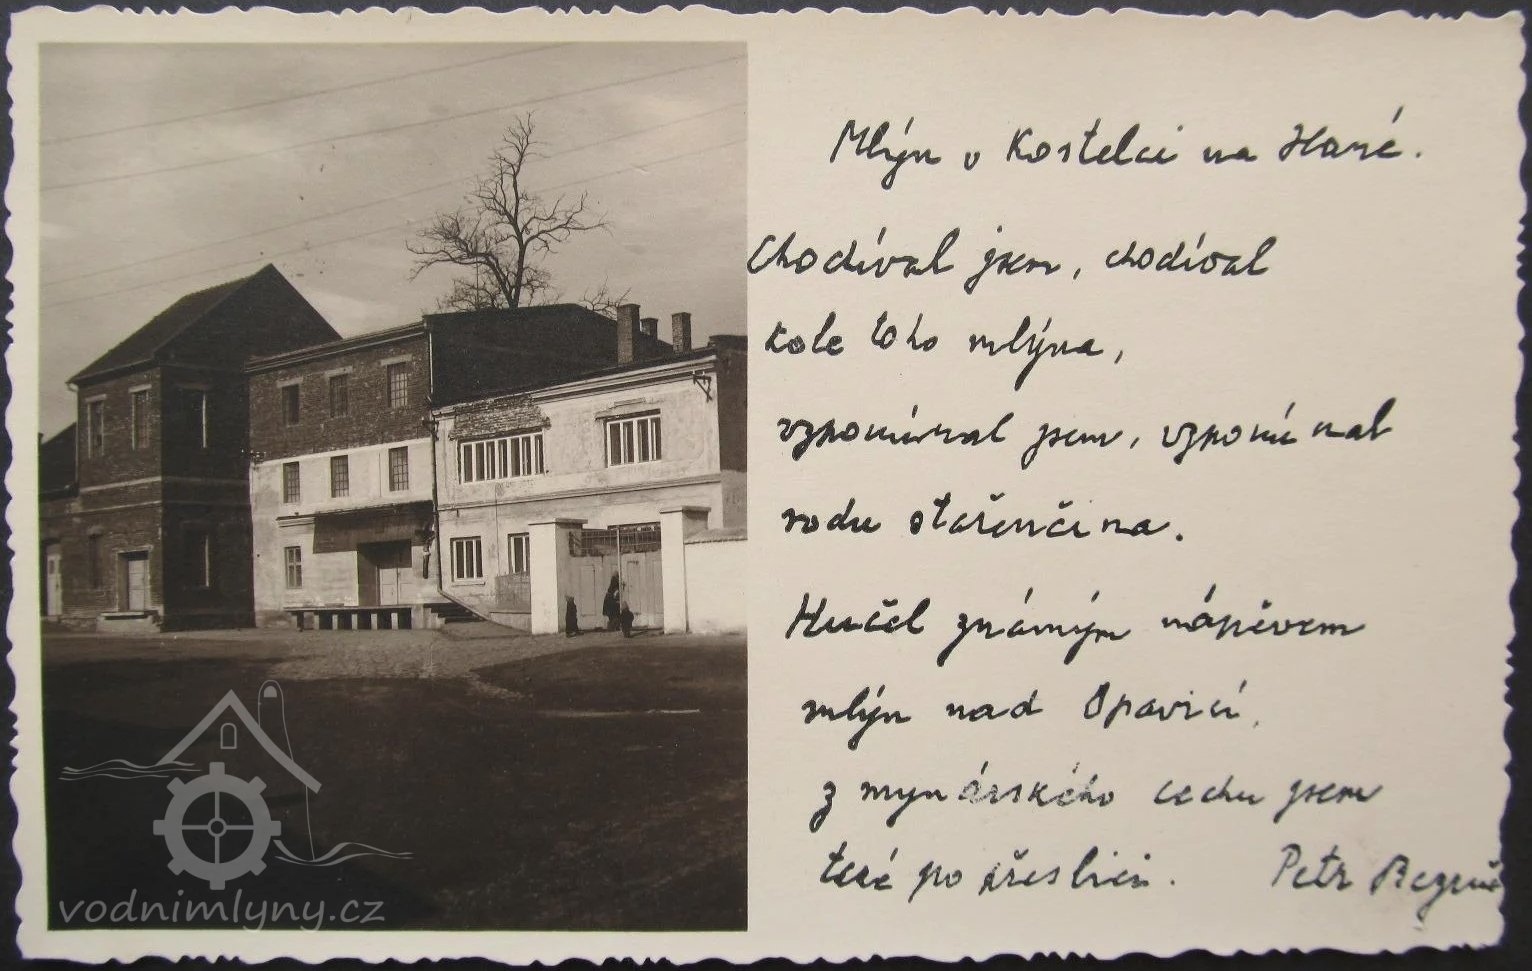 Mlýn v Kostelci na Hané.
Chodíval jsem, chodíval
kole toho mlýna,
vzpomínal jsem, vzpomínal
rodu stařenčina.
Hučel známým nápěvem
mlýn nad Opavicí,
z mynářského cechu jsem
také po přeslici.
Petr Bezruč
vodnimlyny.cz